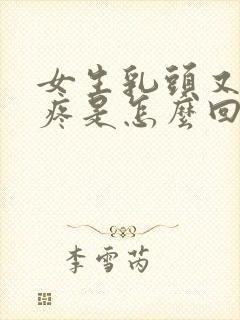 女生乳頭又
疼是怎麼回
李雪芮